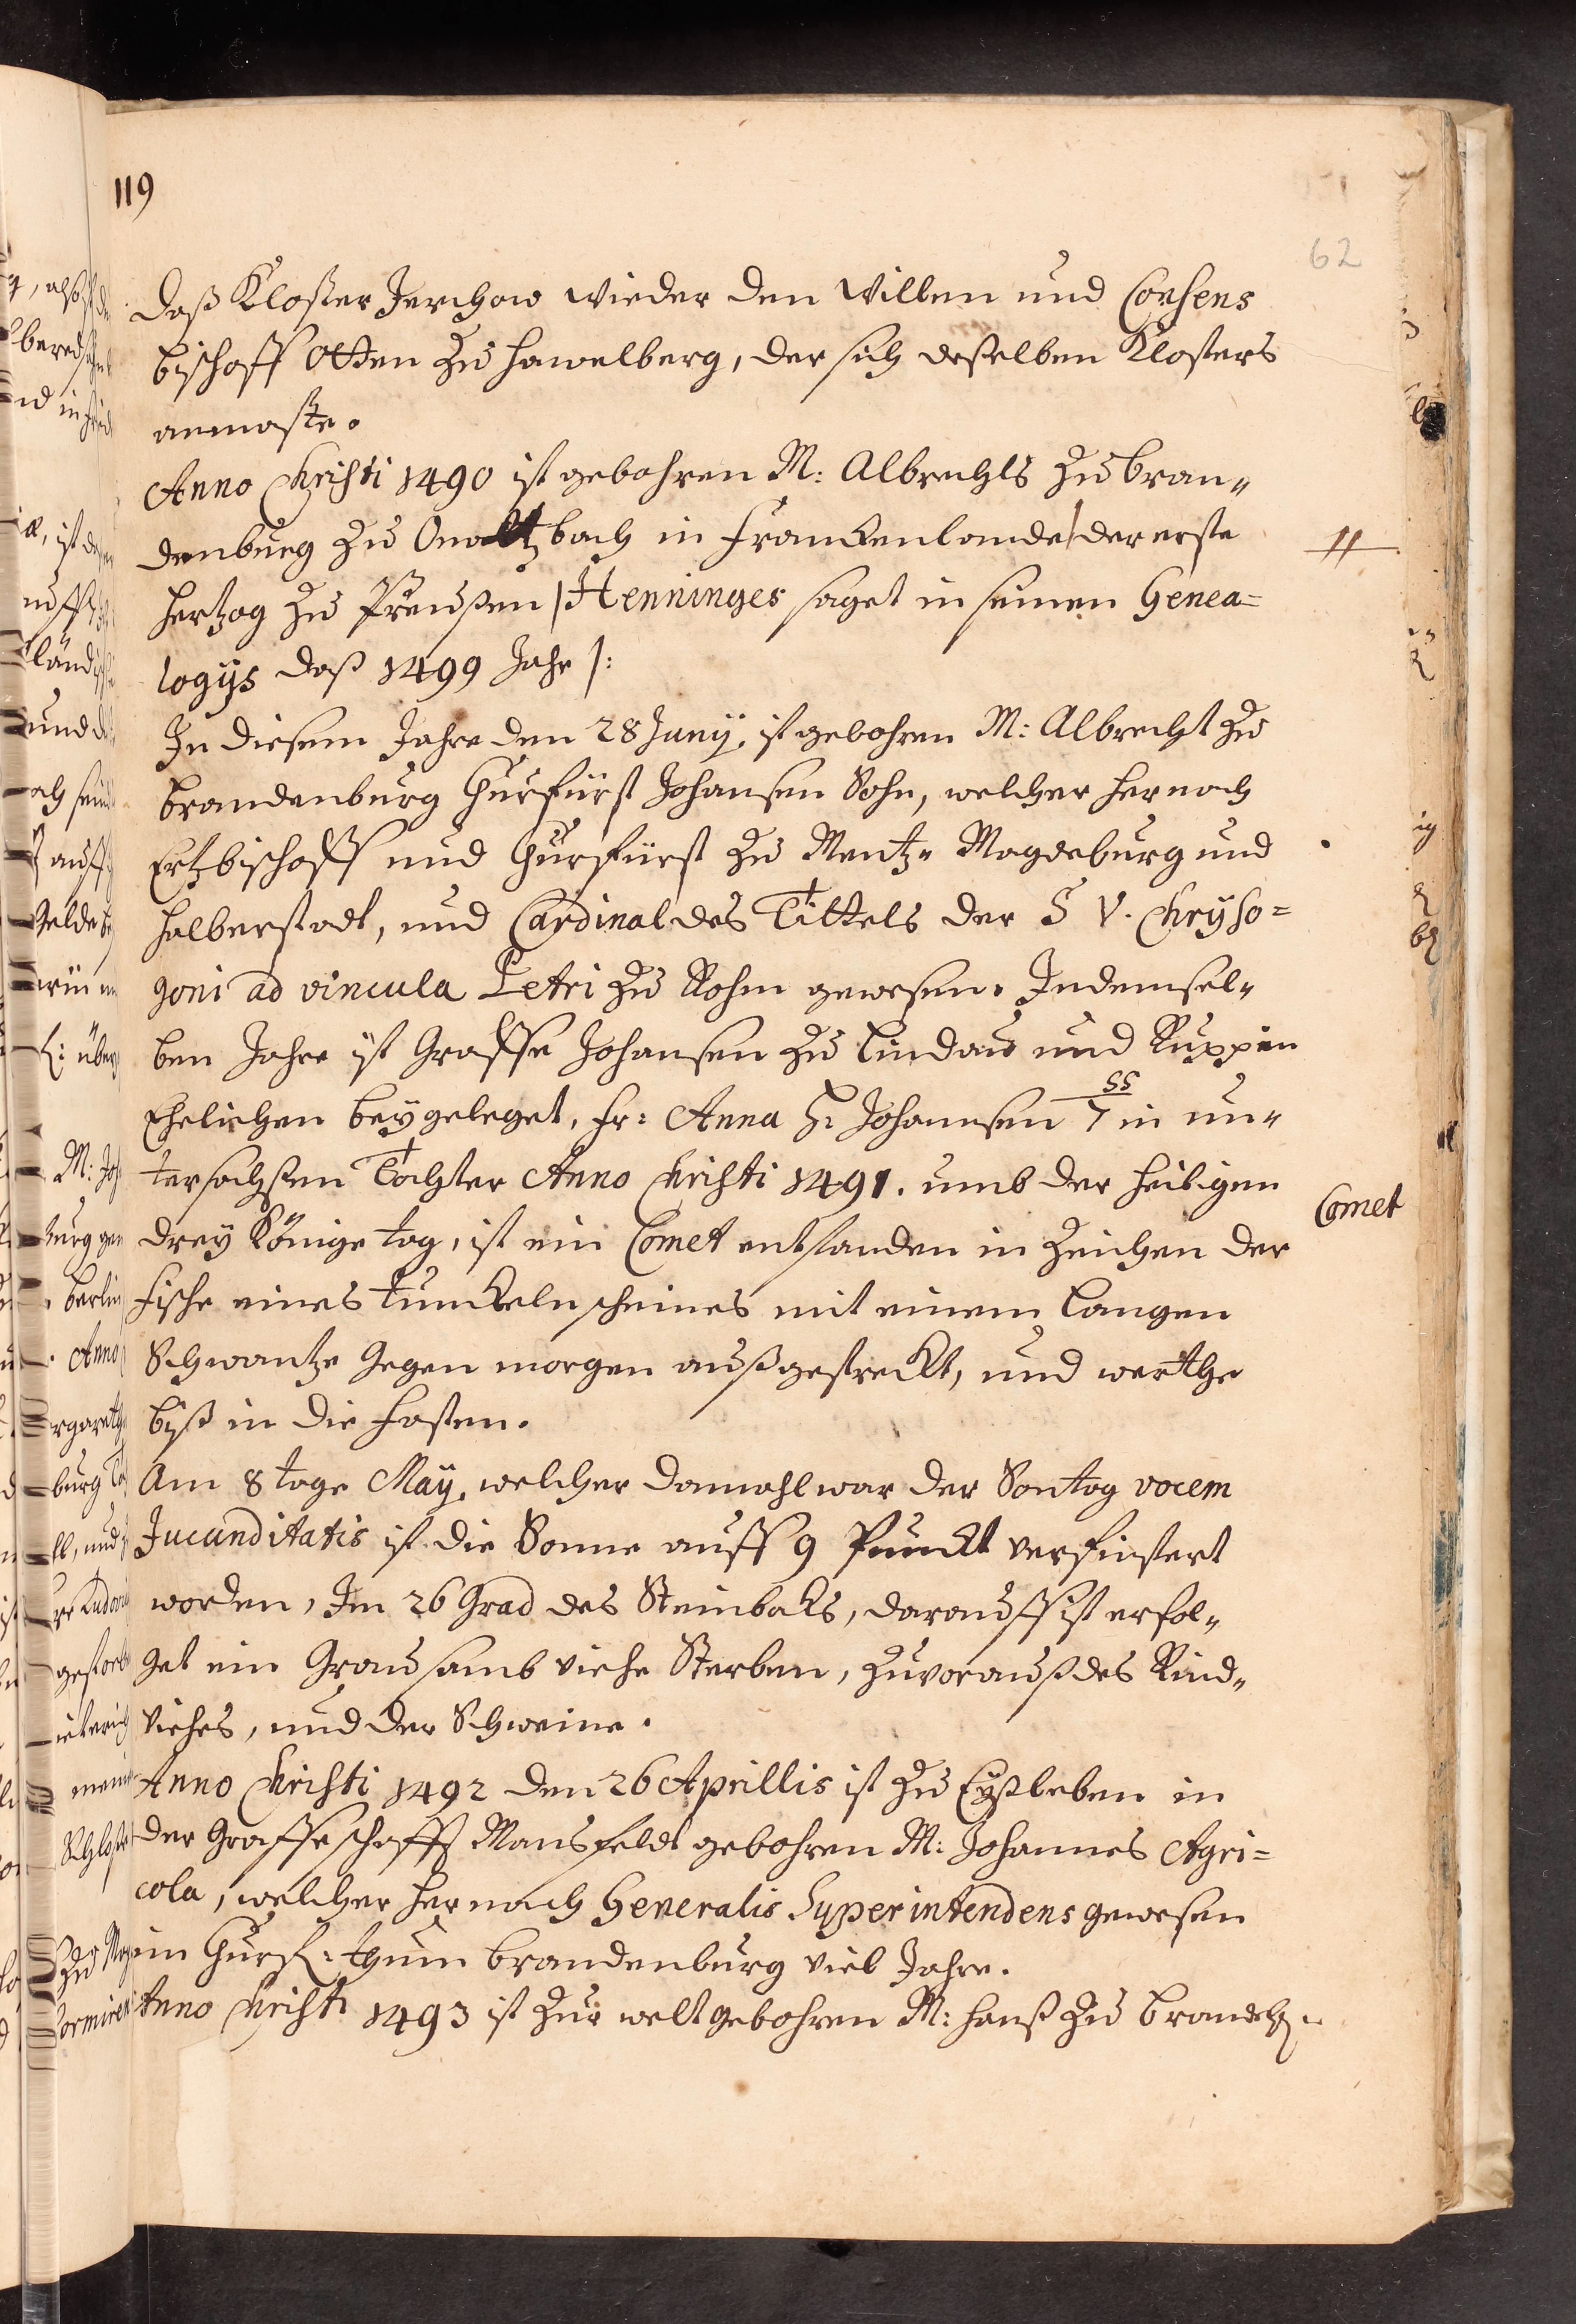 119
62
daß Kloster Jerichow wieder den Willen und Consens
bischoff Otten zu Hawelberg, der sich deßelben Klosters
anmaste.
Anno Christi 1490 ist gebohren M: Albrechts zu bran„
denburg zu Onoltzbach in Franckenlande / der erste
Hertzog zu Preussen | Henninges saget in seinen Genea=
logijs daß 1499 Jahr |:
In diesem Jahre den 28 Junij, ist gebohren M: Albrecht zu
brandenburg Churfürst Johansen Sohn, welcher hernach
Ertzbischoff und Churfürst zu Mentz„ Magdeburg und
Halberstadt, und Cardinal des Tittels der S V. Chryso=
goni ad vincula Petri zu Rohm gewesen. In demsel„
ben Jahre ist Graffe Johansen zu Lindau und Ruppin
Ehelichen beygeleget, Fr: Anna H: Johansen in un„
tersachsen Tochter Anno Christi 1491. umb der heiligen
drey Könige tag, ist ein Comet entstanden in Zeichen der
Comet
Fische eines tunckeln scheines mit einem langen
Schwantze gegen morgen außgestreckt, und werthe
biß in die Fasten.
Am 8 tage Maij, welcher damahl war der Sontag vocem
Jucunditatis ist die Sonne auff 9 Punckt verfinstert
worden, Im 26 Grad des Steinbocks, darauff ist erfol„
get ein Grausamb viehe Sterben, zuvorauß des Rind„
viehes, und der Schweine.
Anno Christi 1492 den 26 Aprillis ist zu Eyßleben in
der Graffeschafft Mansfeldt gebohren M: Johannes Agri=
cola, welcher hernach Generalis Superintendens gewesen
im Churf: thum brandenburg viel Jahre.
Anno Christi 1493 ist zur welt gebohren M: Hanß zu brandb: